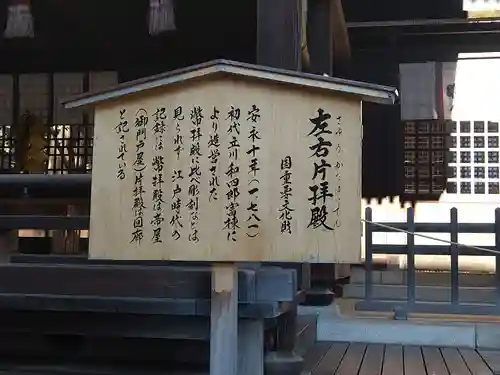 左右片拝殿
さゆうかたはいでん
国重要文化財
安永十年（一七八一）
初代立川和四郎富棟に
より造営された
幣拝殿に比べ彫刻などは
見られず 江戸時代の
記録は 幣拝殿は帝屋
（御門戸屋）拝殿は回廊
と記されている